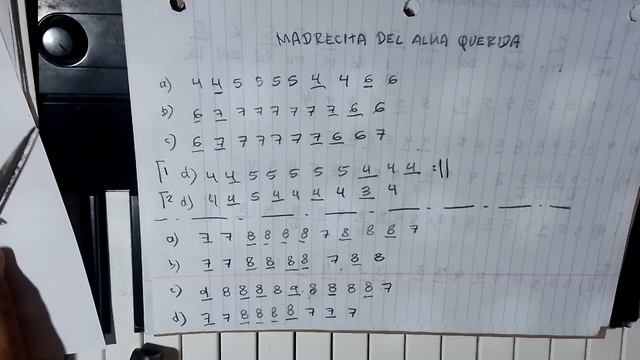 MADRECITA DEL ALMA QUERIDA
a) 4 4 5 5 5 5 4 4 6 6
b) 6 7 7 7 7 7 7 7 6 6
c) 6 7 7 7 7 7 7 6 6 7
[1 d) 4 4 5 5 5 5 5 4 4 4 :||
[2 d) 4 4 5 4 4 4 4 3 4
a) 7 7 8 8 8 8 7 8 8 8 7
b) 7 7 8 8 8 8 7 8 8
c) 9 8 8 8 8 9 8 8 8 8 8 7
d) 7 7 8 8 8 8 7 7 7